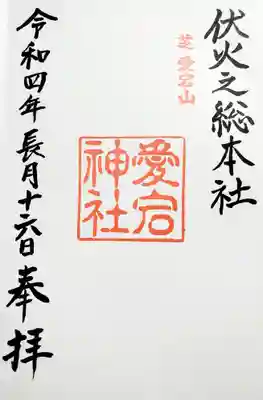 伏火之総本社
芝 愛宕山
愛宕
神社
令和四年長月十六日
奉拝